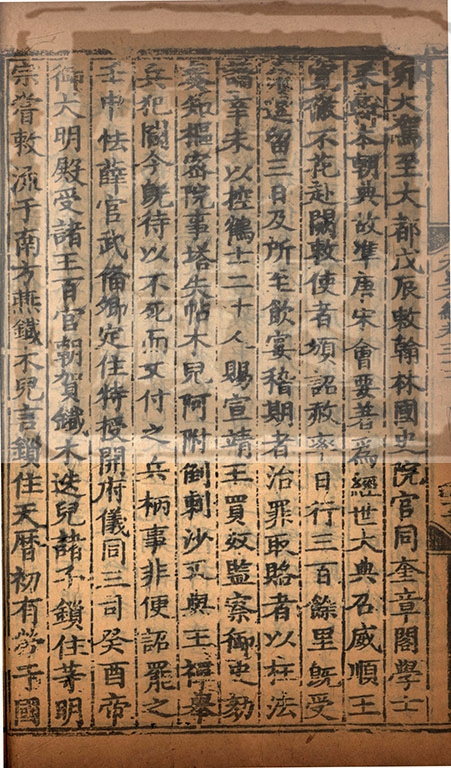 大駕至大都戊辰敕翰林國史院官同奎章閣學士
采輯本朝典故準唐宋會要著爲經世大典召威順王
寬徹不花赴闕敕使者頒詔赦率日行三百餘里既受
命逗留三日及所至飲宴稽期者治罪取賂者以枉法
論辛未以控鶴士二十人賜宣靖王買奴監察御史劾
奏知樞密院事塔失帖木兒阿附倒剌沙又與王禪舉
兵犯闕今既待以不死而又付之兵柄事非便詔罷之
壬申怯薛官武備卿定住特授開府儀同三司癸酉帝
御大明殿受諸王百官朝賀鐵木迭兒諸子鎖住等明
宗嘗敕流于南方燕鐵木兒言鎖住天曆初有勞于國